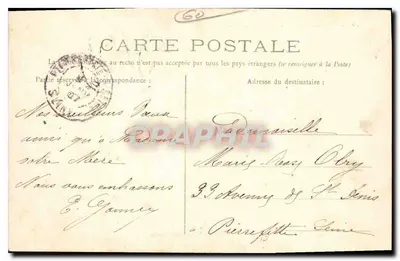 60
CARTE POSTALE
au recto n'est pas acceptée par tous les pays étrangers (se renseigner à la Poste)
Partie réservée à la correspondance:
Adresse du destinataire:
Nos meilleurs Voeux
ainsi qu'à
votre Mère
Nous vous embrassons
Demoiselle
Marie Rose Obry
33 Avenue de St Denis
à Pierrefitte Seine